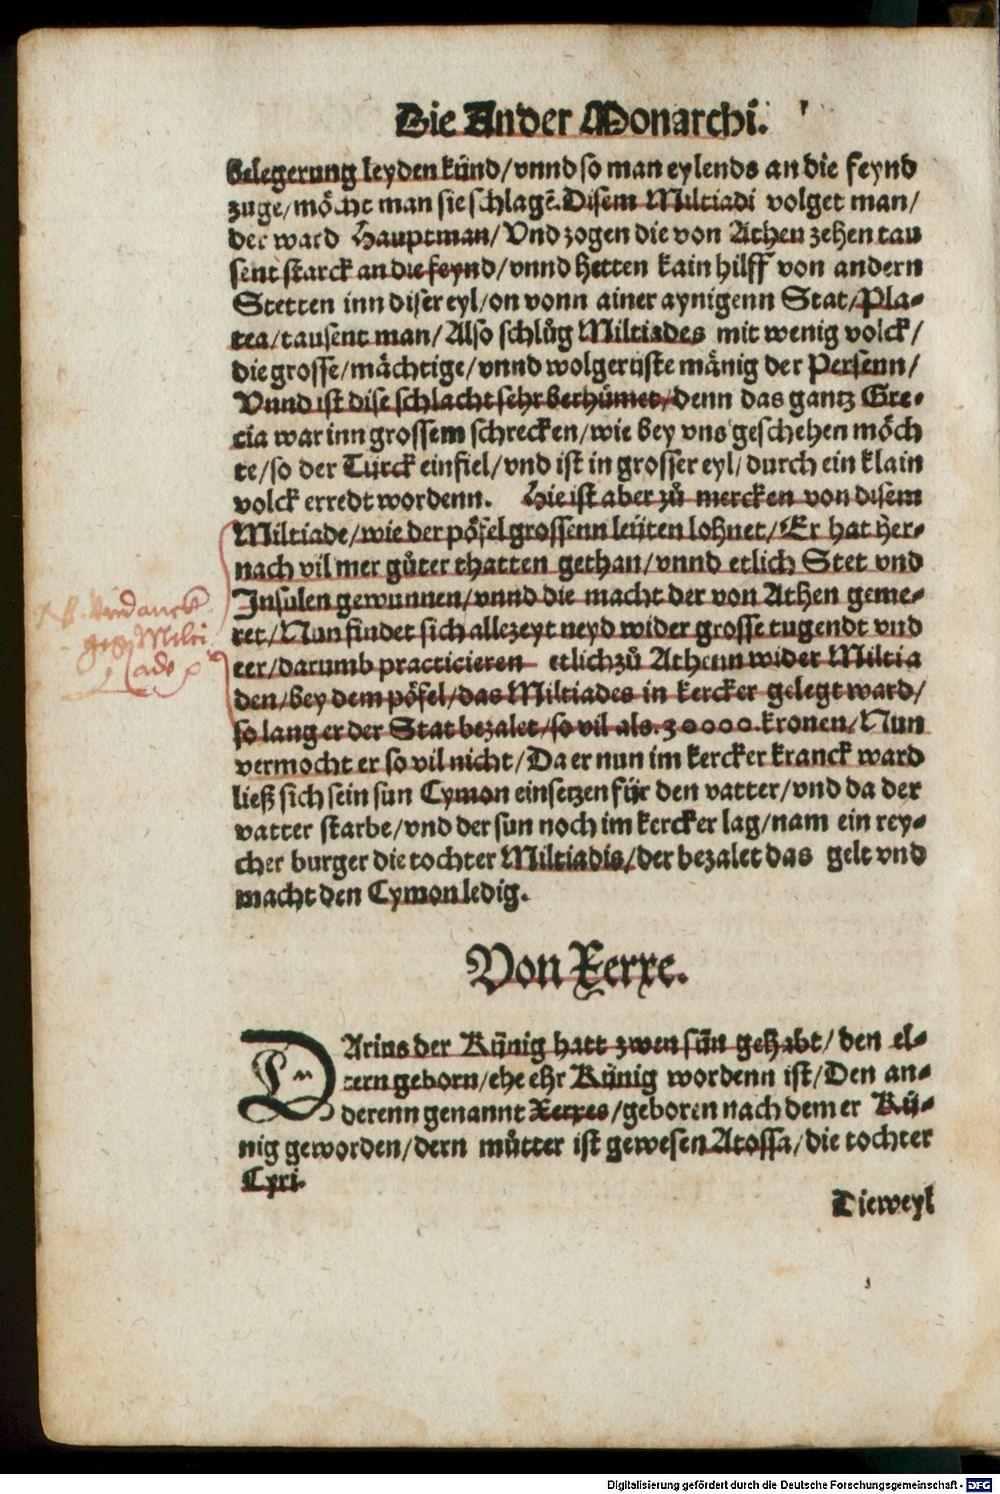 Die Ander Monarchi.
belegerung leyden künd/vnnd so man eylends an die feynd
zuge/möcht man sie schlagē. Disem Miltiadi volget man/
der ward Hauptman/Vnd zogen die von Athen zehen tau
sent starck an die feynd/vnnd hetten kain hilff von andern
Stetten inn diser eyl/on vonn ainer aynigenn Stat/Pla-
tea/tausent man/Also schlůg Miltiades mit wenig volck/
die grosse/mächtige/vnnd wolgerüste mänig der Persenn/
Vnnd ist dise schlacht sehr berhümet/denn das gantz Gre-
cia war inn grossem schrecken/wie bey vns geschehen möch
te/so der Türck einfiel/vnd ist in grosser eyl/durch ein klain
volck erredt wordenn. Hie ist aber zů mercken von disem
Miltiade/wie der pöfel grossenn leüten lohnet/Er hat her-
nach vil mer gůter thatten gethan/vnnd etlich Stet vnd
Insulen gewunnen/vnnd die macht der von Athen geme-
ret/Nun findet sich allezeyt neyd wider grosse tugendt vnd
eer/darumb practicieren etlich zů Athenn wider Miltia
den/bey dem pöfel/das Miltiades in kercker gelegt ward/
so lang er der Stat bezalet/so vil als. 30000. kronen/Nun
vermocht er so vil nicht/Da er nun im kercker kranck ward
ließ sich sein sun Cymon einsetzen für den vatter/vnd da der
vatter starbe/vnd der sun noch im kercker lag/nam ein rey-
cher burger die tochter Miltiadis/der bezalet das gelt vnd
macht den Cymon ledig.
Vndanck
geg Milti
ade
Von Xerxe.
DArius der Künig hatt zwen sün gehabt/den el-
tern geborn/ehe ehr Künig wordenn ist/Den an-
derenn genannt Xerxes/geboren nach dem er Kü-
nig geworden/dern můtter ist gewesen Atossa/die tochter
Cyri.
Dieweyl
Digitalisierung gefördert durch die Deutsche Forschungsgemeinschaft - DFG